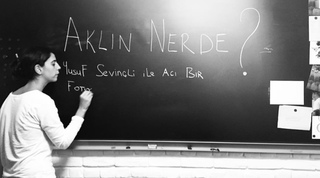 AKLIN NERDE?
Yusuf Sevinçli ile Acı Bir
Foto